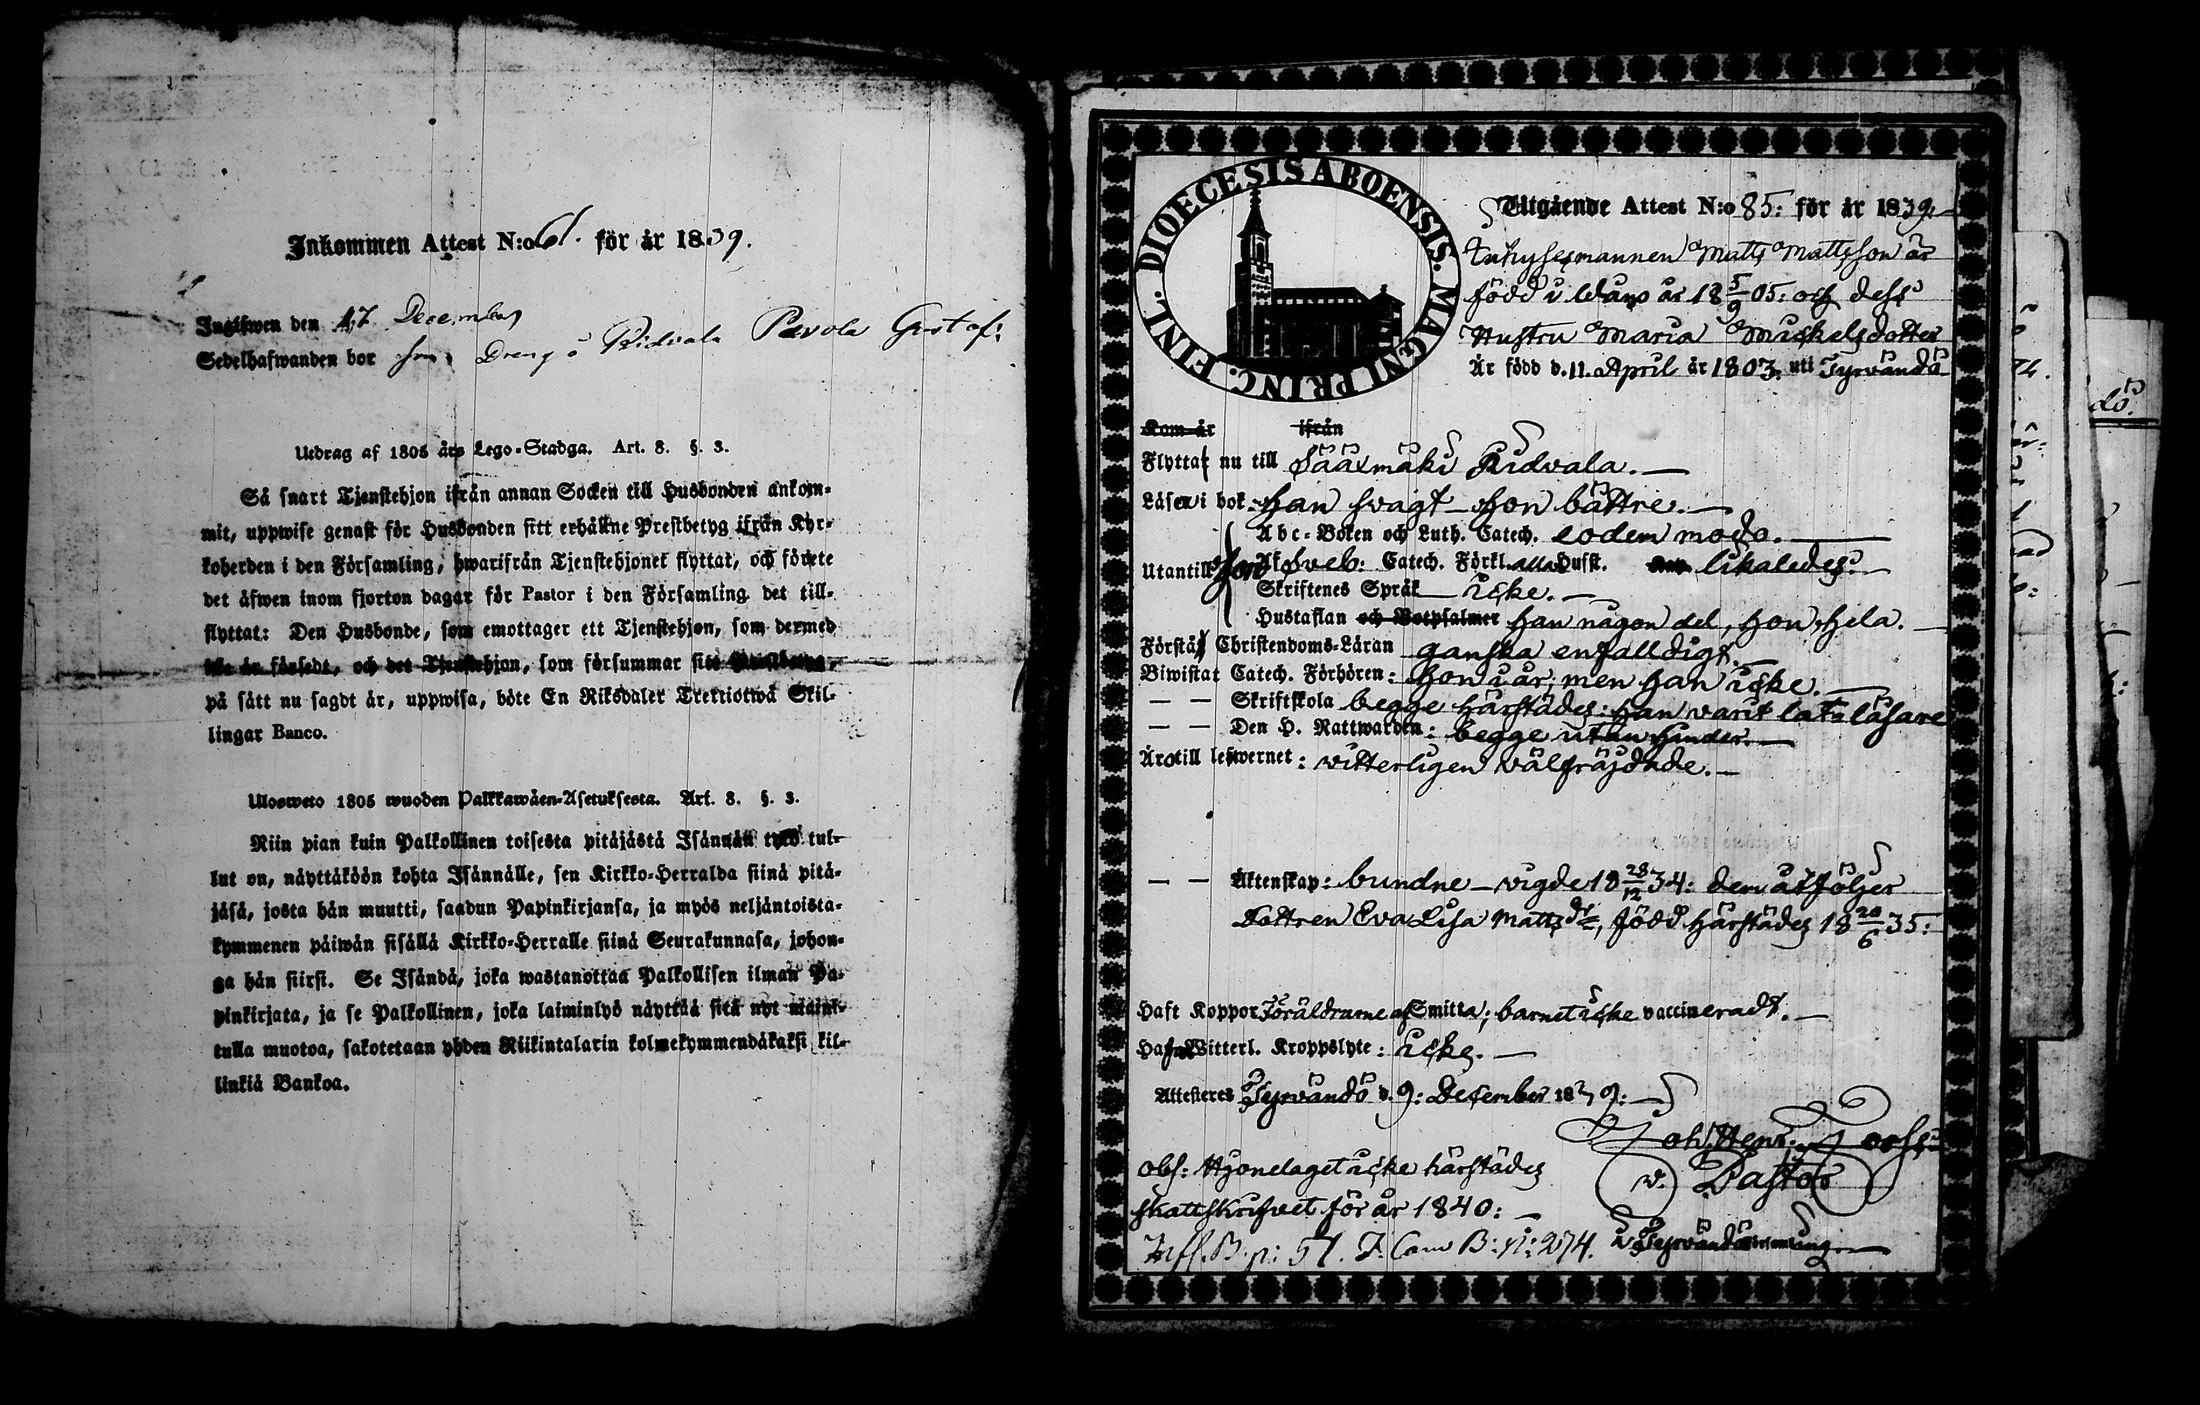 Inkommen Attest N:o 61. för år 1839.
Ingifwen den 17 December
Sedelhafwanden bor som Dreng å Ridvala Pavola Gustaf:
Utdrag af 1805 års Lego-Stadga. Art. 8. §. 3.
Så snart Tjenstehjon ifrån annan Socken till Husbonden ankom-
mit, uppwise genast för Husbonden sitt erhållne Prestbetyg ifrån Kyr-
koherden i den Församling, hwarifrån Tjenstehjonet flyttat, och förete
det äfwen inom fjorton dagar för Pastor i den Församling det till-
flyttat: Den Husbonde, som emottager ett Tjenstehjon, som dermed
icke är försedt, och det Tjenstehjon, som försummar sitt Prestbetyg,
på sätt nu sagdt är, uppwisa, böte En Riksdaler Trettiotwå Skil-
lingar Banco.
Ulosweto 1805 wuoden Palkkawäen-Asetuksesta. Art. 8. §. 3.
Niin pian kuin Palkollinen toisesta pitäjästä Isännän tykö tul-
lut on, näyttäköön kohta Isännälle, sen Kirkko-Herralda siinä pitä-
jäsä, josta hän muutti, saadun Papinkirjansa, ja myös neljäntoista-
kymmenen päiwän sisällä Kirkko-Herralle siinä Seurakunnasa, johon-
ga hän siirsi. Se Isändä, joka wastanottaa Palkollisen ilman Pa-
pinkirjata, ja se Palkollinen, joka laiminlyö näyttää sitä nyt mainit-
tulla muotoa, sakotetaan yhden Riikintalarin kolmekymmendäkaksi kil-
linkiä Bankoa.
DIOECESIS ABOENSIS. MAGNI PRINC. FINL.
Utgående Attest N:o 85: för år 1839.
Inhysesmannen Matts Mattsson är
född i Urdiala år 18 5/9 05: och dess
Hustru Maria Mickelsdotter
Är född d. 11. April år 1803. uti Tyrvändö
Kom år ifrån
Flyttar nu till Sääxmäki Ridvala.
Läser i bok: han svagt hon bättre.
Abc-Boken och Luth. Catech. eodem modo.
Utantill Catech. Förkl. Husst. likaledes.
Skriftenes Språk icke.
Hustaflan och Botpsalmer han någon del, hon hela.
Förstå Christendoms-Läran ganska enfalldigt.
Biwistat Catech. Förhören: hon i år, men han icke.
— — Skriftskola begge härstädes: han varit lat läsare
— — Den H. Nattwarden: begge utan hinder.
Äro till lefwernet: vitterligen välfräjdade.
— — Äktenskap: bundne vigde 18 28/12 34: dem åtföljer
dottren Eva Lisa Matts dr, född härstädes 18 20/6 35:
Haft Koppor Föräldrarne af Smitta, barnet icke vaccineradt.
Hafwa Witterl. Kroppslyte: icke.
Attesteres Tyrvändö d. 9: December 1839:
Joh. Henr.
v. Pastor
i Tyrvändö
obs: Hjonelaget icke härstädes
skattskrifvet för år 1840:
Infl. B. p: 51. J. Com B: n: 274.